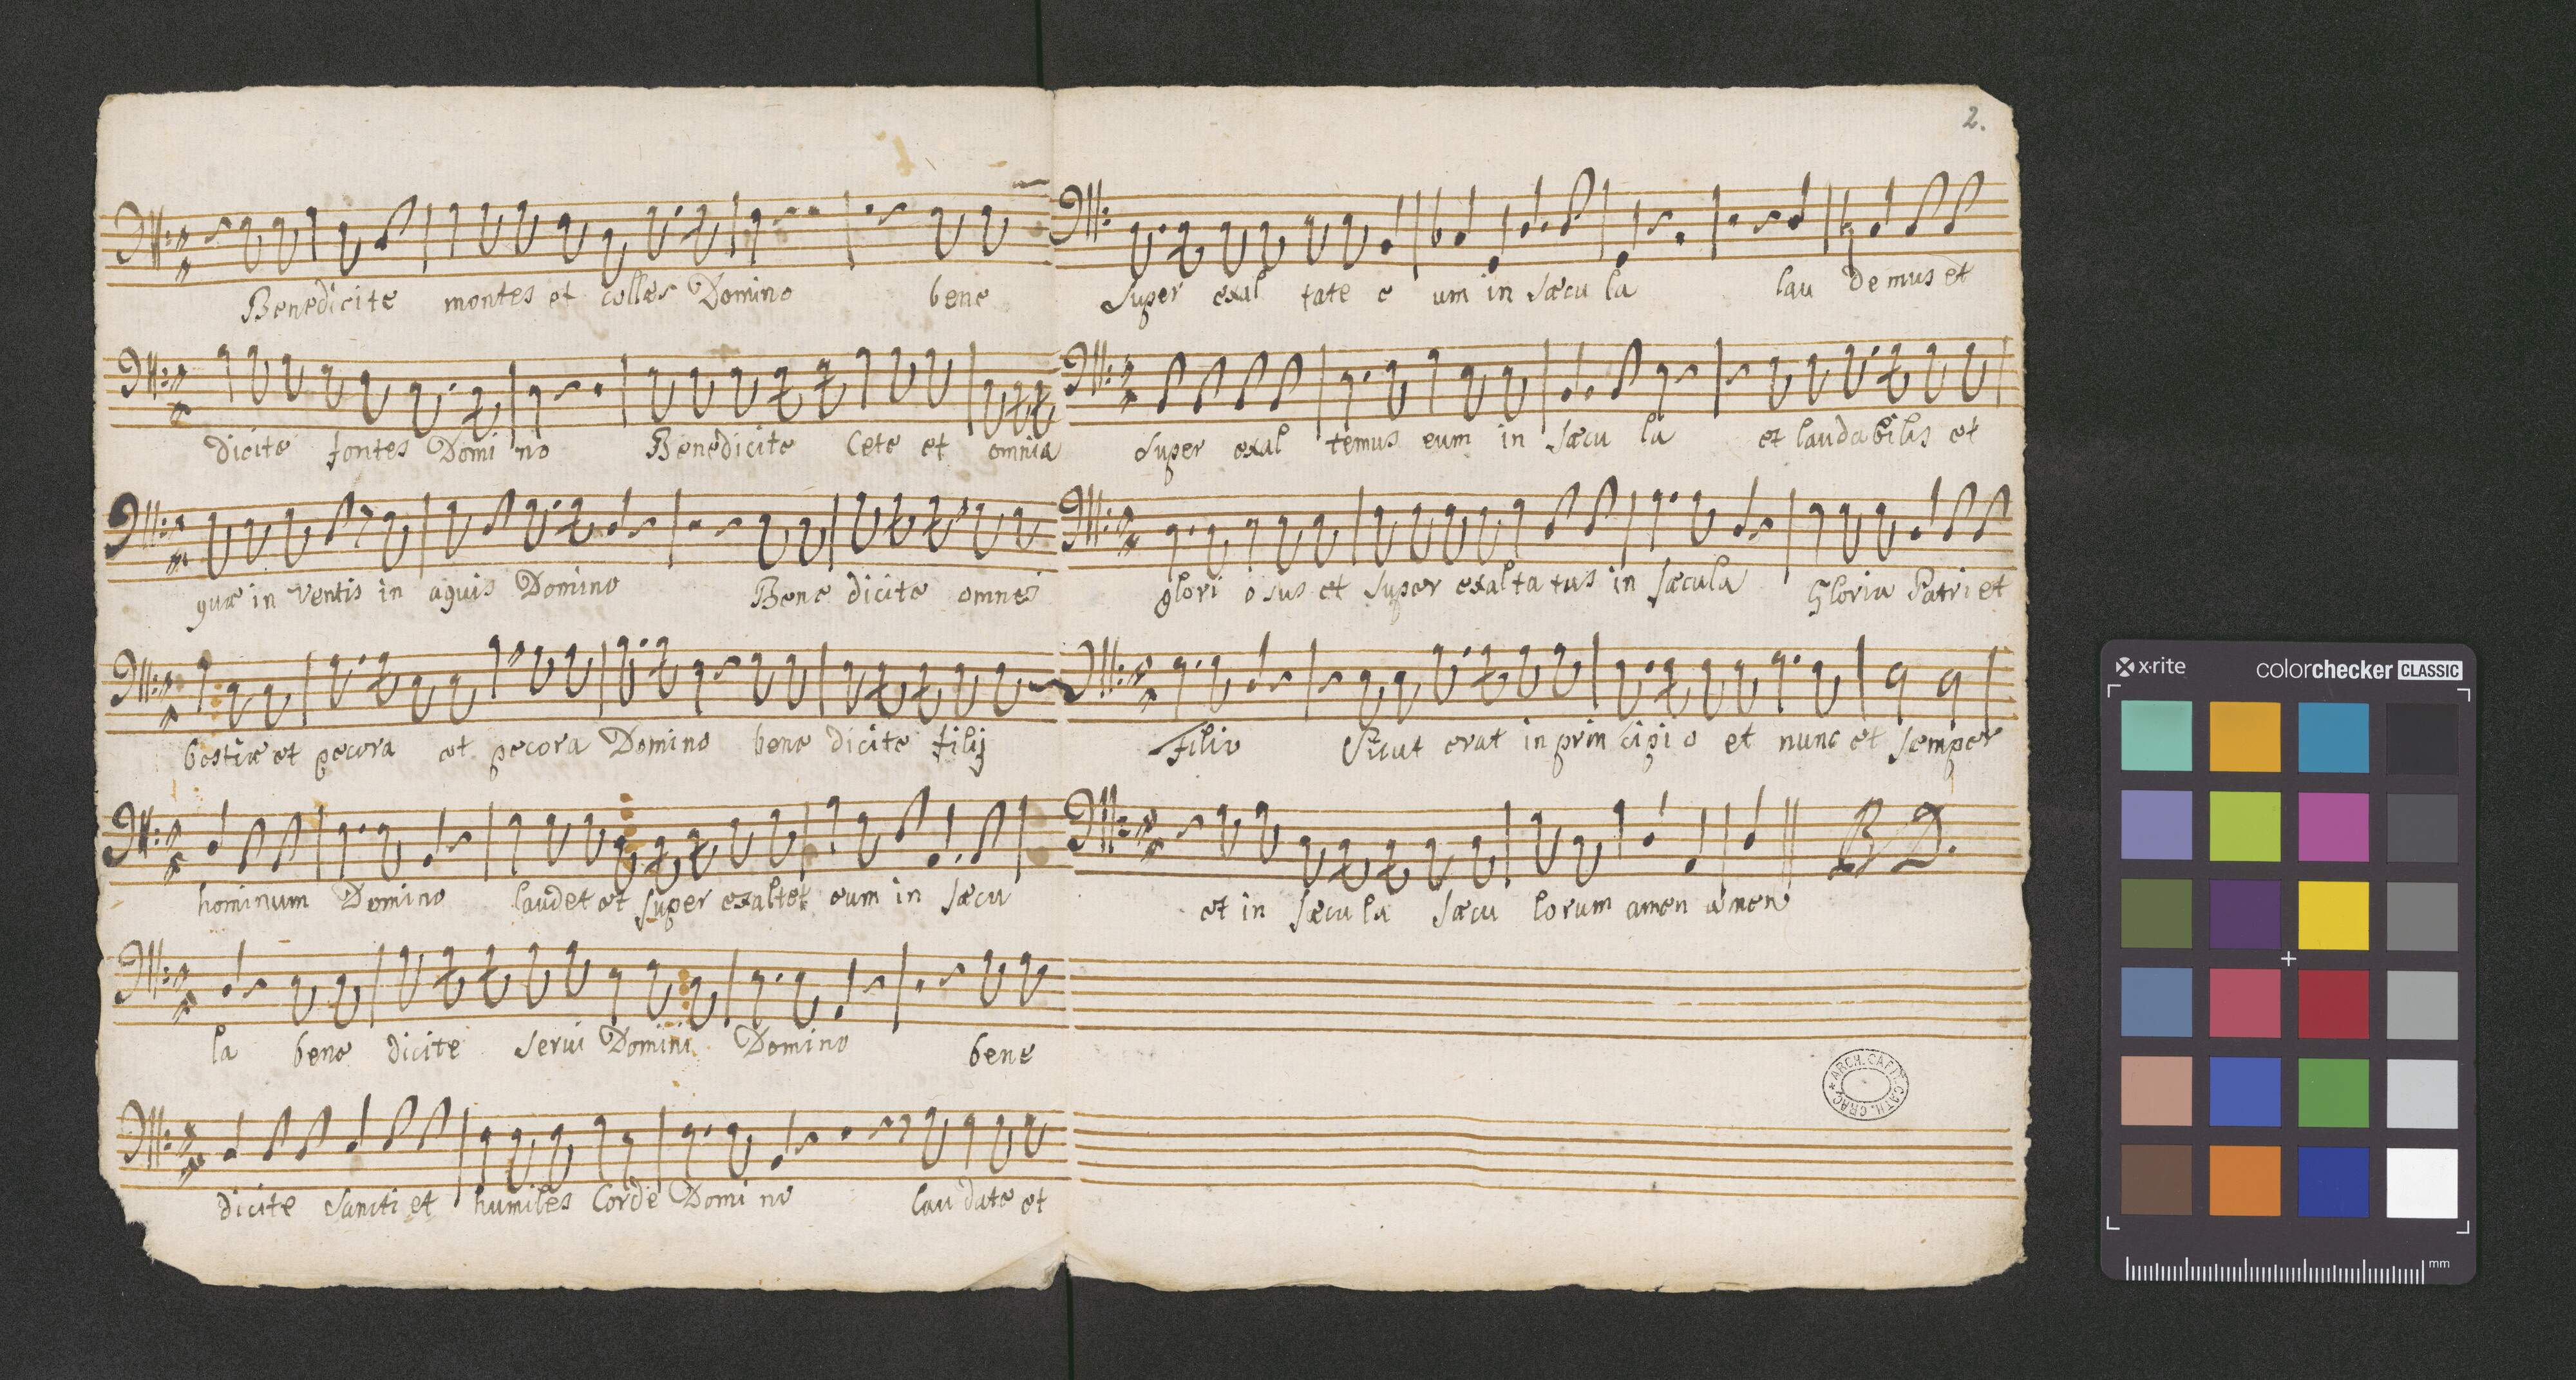 Benedicite montes et colles Domino bene
dicite fontes Domino Benedicite Cete et omnia
quæ in ventis in aquis Domino Bene dicite omnes
bestiæ et pecora et pecora Domino bene dicite filij
hominum Domino laudet et super exaltet eum in sæcu
la bene dicite servi Domini Domino bene
dicite Sancti et humiles Corde Domino laudate et
2.
Super exal tate e um in sæcu la lau demus et
Super exal temus eum in sæcu la et laudabilis et
glori osus et super exalta tus in sæcula Gloria Patri et
Filio Sicut erat in prin cipi o et nunc et semper
et in sæcu la sæcu lorum amen amen
ARCH. CAPIT. CATH. CRAC.
x·rite colorchecker CLASSIC
mm